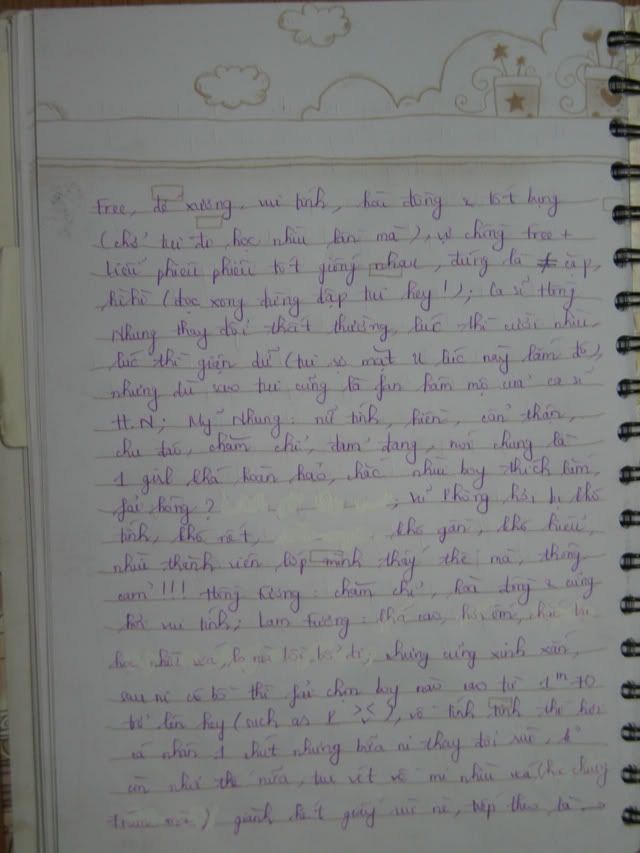 Free, dễ xương, vui tính, hòa đồng & tốt bụng
(chở tui đo học nhìu lần mà), vợ chồng free +
tiểu phiêu phiêu tốt giống nhau, đúng là ≠ cặp,
hì hì (đọc xong đừng đập tui hey!); Ca sĩ Hồng
Nhung thay đổi thất thường, lúc thì cười nhìu,
lúc thì giận dữ (tui sợ mặt U lúc này lắm đó),
nhưng dù sao tui cũng là fan hâm mộ của ca sĩ
H.N; Mỹ Nhung: nữ tính, hiền, cẩn thận,
chu đáo, chăm chỉ, đảm đang, nói chung là
1 girl khá hoàn hảo, chắc nhìu boy thích lắm
fải hông? ; Vũ Phong hơi bị khó
tính, khó rất, khó gần, khó hiểu,
nhìu thành viên lớp mình thấy thế mà, thông
cảm!!! Hồng Sương: chăm chỉ, hòa đồng & cũng
hơi vui tính; Lam Tường: khá cao, hơi ốm,
học nhồi wá, nhưng cũng xinh xắn,
sau ni có bồ thì fải chọn boy nào cao từ 1m70
trở lên hey (such as P >"<), về tính tình thì hơi
cá nhân 1 chút nhưng bữa ni thay đổi rùi, k°
còn như thế nữa, tui viết về mi nhìu wá
giành hết giấy rùi nè, tiếp theo là →